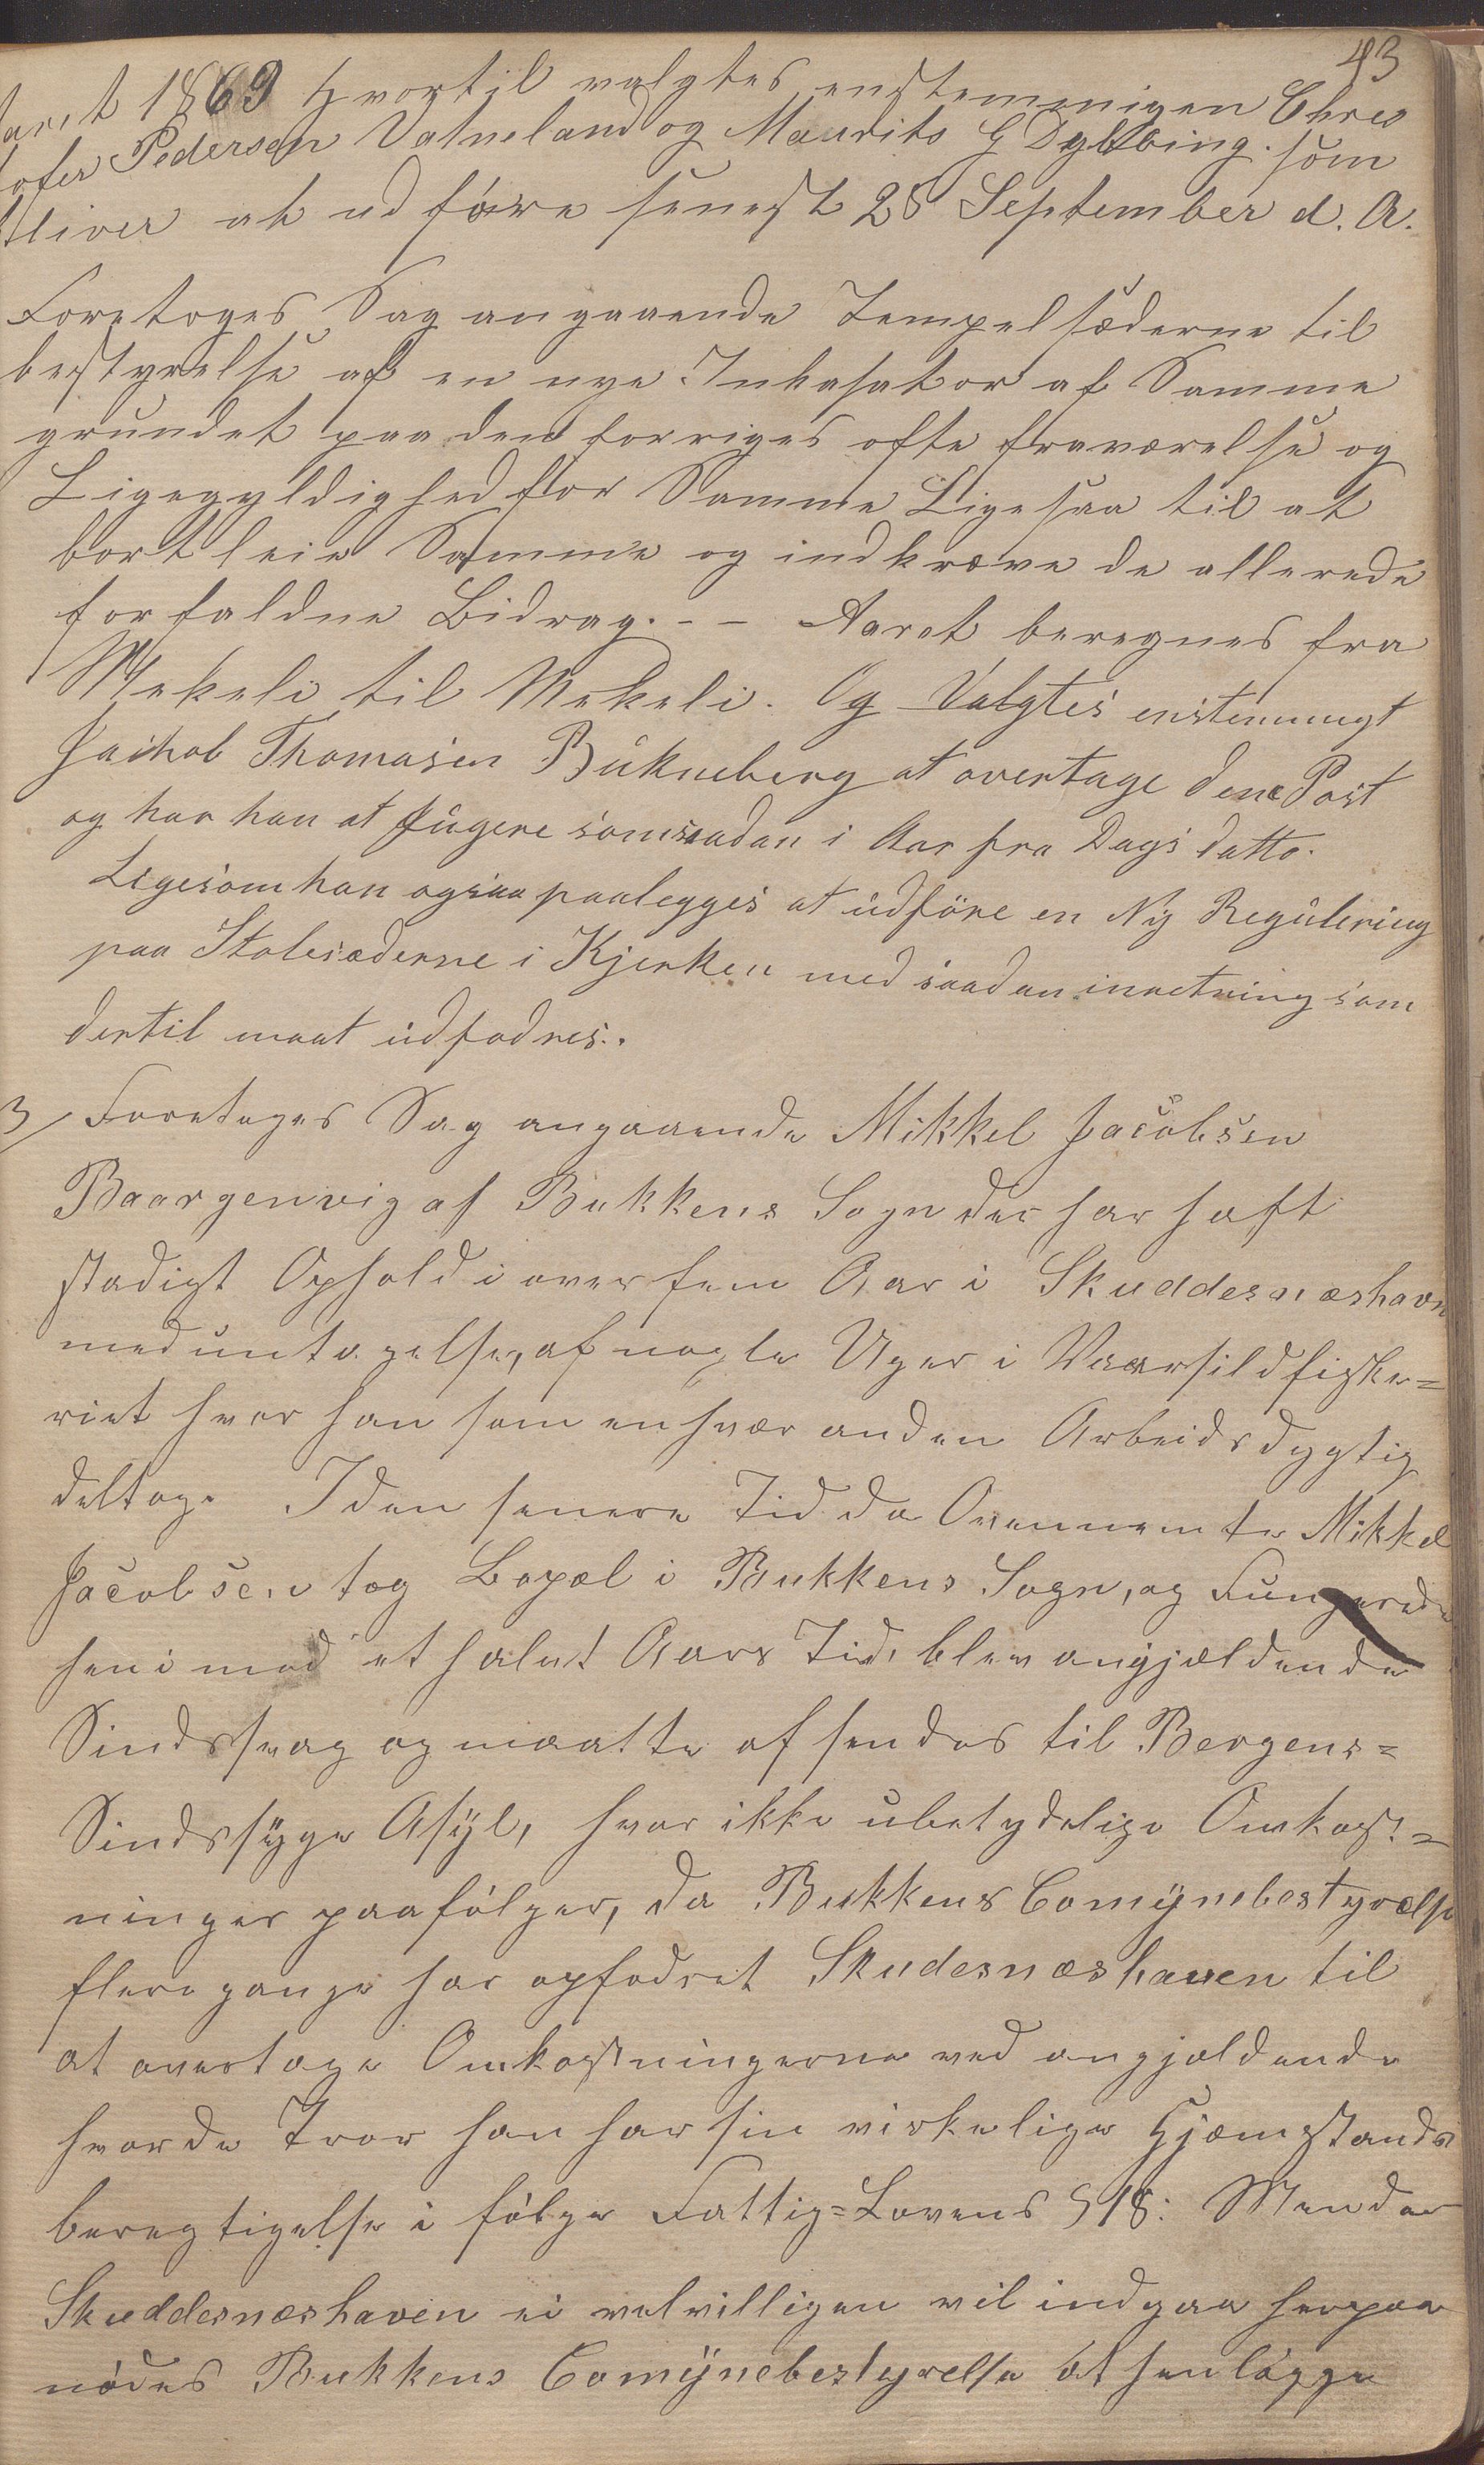 43
aaret 1869 Hvortil valgtes enstemmigen Chris
tofer Pedersen Vatneland og Maurits G Dybbing. som
bliver at udføre senest 28 September d. A.
Foretoges Sag angaaende Tempelsæderne til
bestyrelse af en nye Inkasator af Samme
grundet paa den forriges ofte fraværelse og
Ligegyldighed for Samme Ligesaa til at
bortleie Samme og indkræve de allerede
forfaldne Bidrag. - - Aaret beregnes fra
Mekeli til Mekeli. Og Valgtes enstemmigt
Jackob Thomasen Bukneberg at overtage dene Post
og har han at fugere somsaadan i Aar fra Dags datto.
Ligesom han ogsaa paalegges at udføre en Ny Regulering
paa Stolesæderne i Kjerken med saadan inretning som
dertil maat udfodres..
3/ Foretoges Sag angaaende Mikkel Jacobsen
Baargenvig af Bukkens Sogn der har haft
stadigt Ophold i over fem Aar i Skuddesnæshavn
med untagelse, af nogle Uger i Vaarsildfiske=
riet hvor han som en hvær anden Arbeidsdygtig
deltog. I den senere Tid da Ovennemte Mikkel
Jacobsen tog Bopæl i Bukkens Sogn, og Fungerede
henimod et halvt Aars Tid, blev angjældende
Sindssvag og maatte afsendes til Bergens=
Sindssyge Asyl, hvor ikke ubetydelige Omkost=
ninger paafølger, da Bukkens Comynebestyrelse
flere gange har opfodret Skudesnæshaven til
at overtage Omkostningerne ved angjældende
hvor de Tror han har sin virkelige Hjæmstands
beregtigelse i følge Fattig=Lovens § 18: Men da
Skuddesnæshaven ei velvilligen vil indgaa herpaa
nødes Bukkens Comynebestyrelse at henlægge